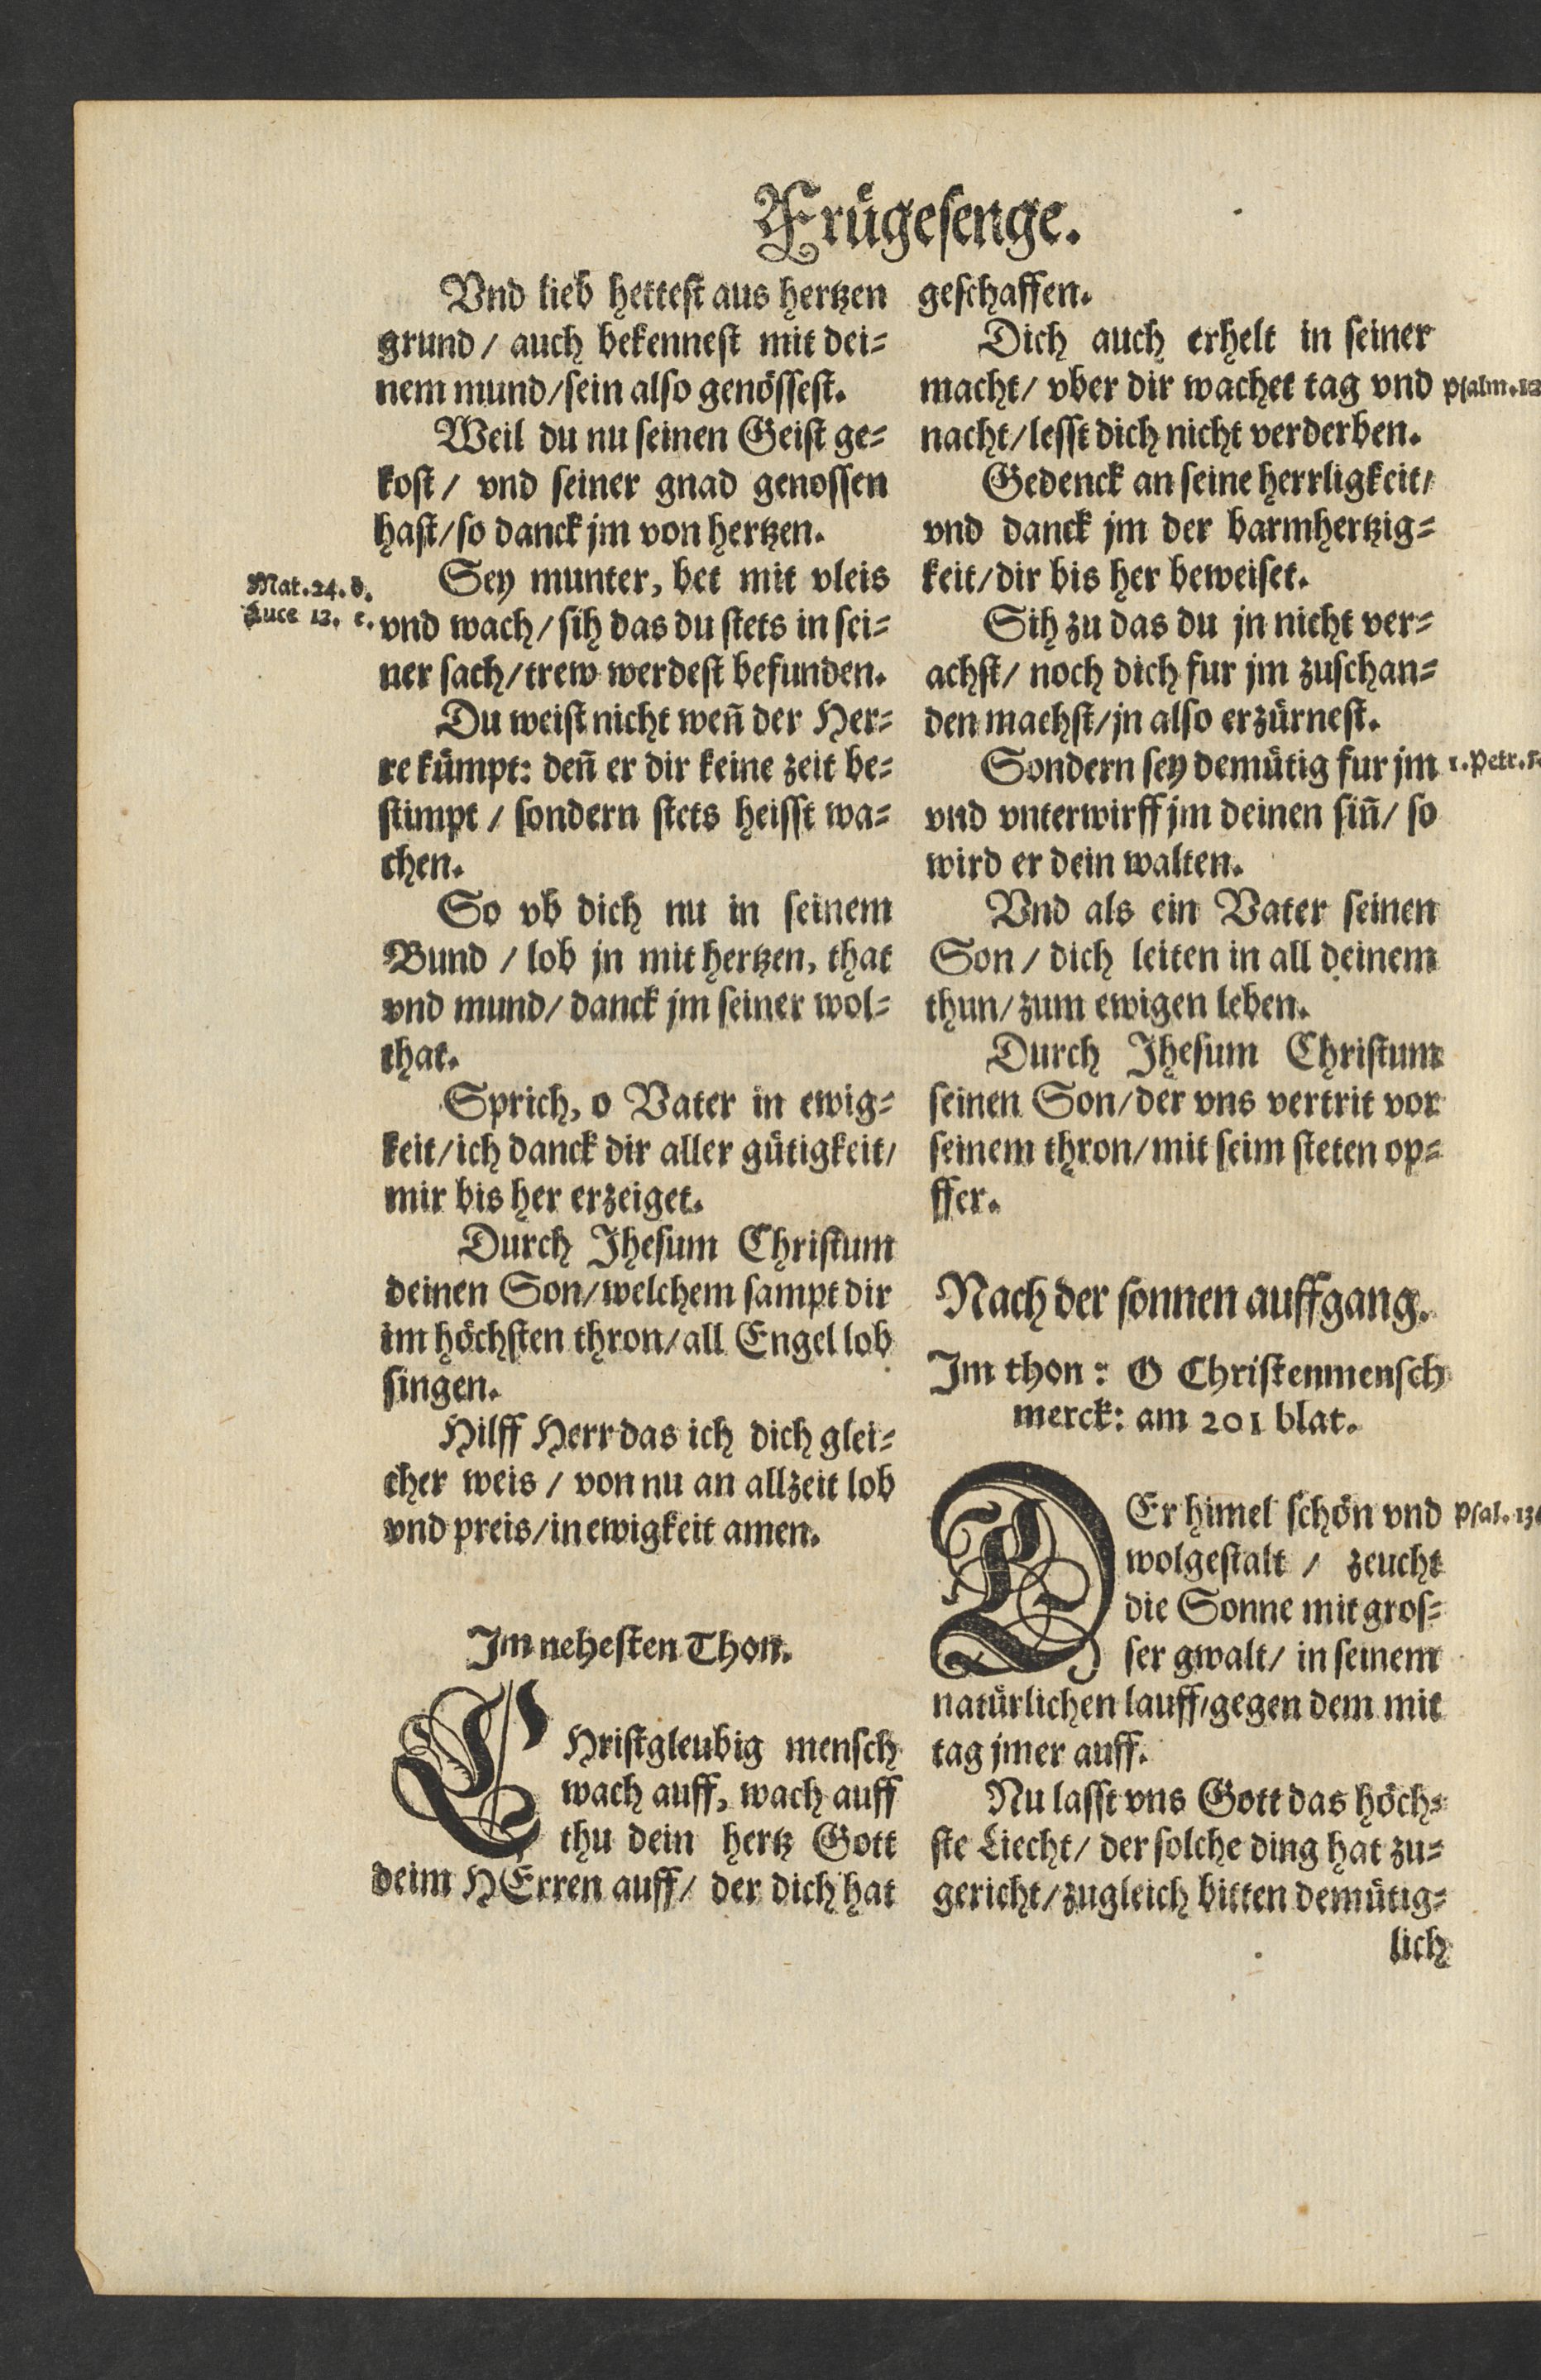 Frügesenge.
Vnd lieb hettest aus hertzen
grund / auch bekennest mit dei=
nem mund/sein also genössest.
Weil du nu seinen Geist ge=
kost / vnd seiner gnad genossen
hast/so danck jm von hertzen.
Mat.24.d.
Luce 12. e.
Sey munter, bet mit vleis
vnd wach/sih das du stets in sei=
ner sach/trew werdest befunden.
Du weist nicht weñ der Her=
re kümpt: deñ er dir keine zeit be=
stimpt / sondern stets heisst wa=
chen.
So vb dich nu in seinem
Bund / lob jn mit hertzen, that
vnd mund/danck jm seiner wol=
that.
Sprich, o Vater in ewig=
keit/ich danck dir aller gütigkeit/
mir bis her erzeiget.
Durch Jhesum Christum
deinen Son/welchem sampt dir
im höchsten thron/all Engel lob
singen.
Hilff Herr das ich dich glei=
cher weis / von nu an allzeit lob
vnd preis/in ewigkeit amen.
Im nehesten Thon.
CHristgleubig mensch
wach auff, wach auff
thu dein hertz Gott
deim HErren auff/ der dich hat
geschaffen.
Dich auch erhelt in seiner
macht/ vber dir wachet tag vnd
nacht/lesst dich nicht verderben.
Psalm.
Gedenck an seine herrligkeit/
vnd danck jm der barmhertzig=
keit/dir bis her beweiset.
Sih zu das du jn nicht ver=
achst/ noch dich fur jm zuschan=
den machst/jn also erzürnest.
Sondern sey demütig fur jm
1.Petr.
vnd vnterwirff jm deinen siñ/ so
wird er dein walten.
Vnd als ein Vater seinen
Son / dich leiten in all deinem
thun/zum ewigen leben.
Durch Jhesum Christum
seinen Son/der vns vertrit vor
seinem thron/mit seim steten op=
ffer.
Nach der sonnen auffgang.
Im thon: O Christenmensch
merck: am 201 blat.
DEr himel schön vnd
Psal.
wolgestalt / zeucht
die Sonne mit gros=
ser gwalt/ in seinem
natürlichen lauff/gegen dem mit
tag jmer auff.
Nu lasst vns Gott das höch=
ste Liecht/ der solche ding hat zu=
gericht/zugleich bitten demütig=
lich